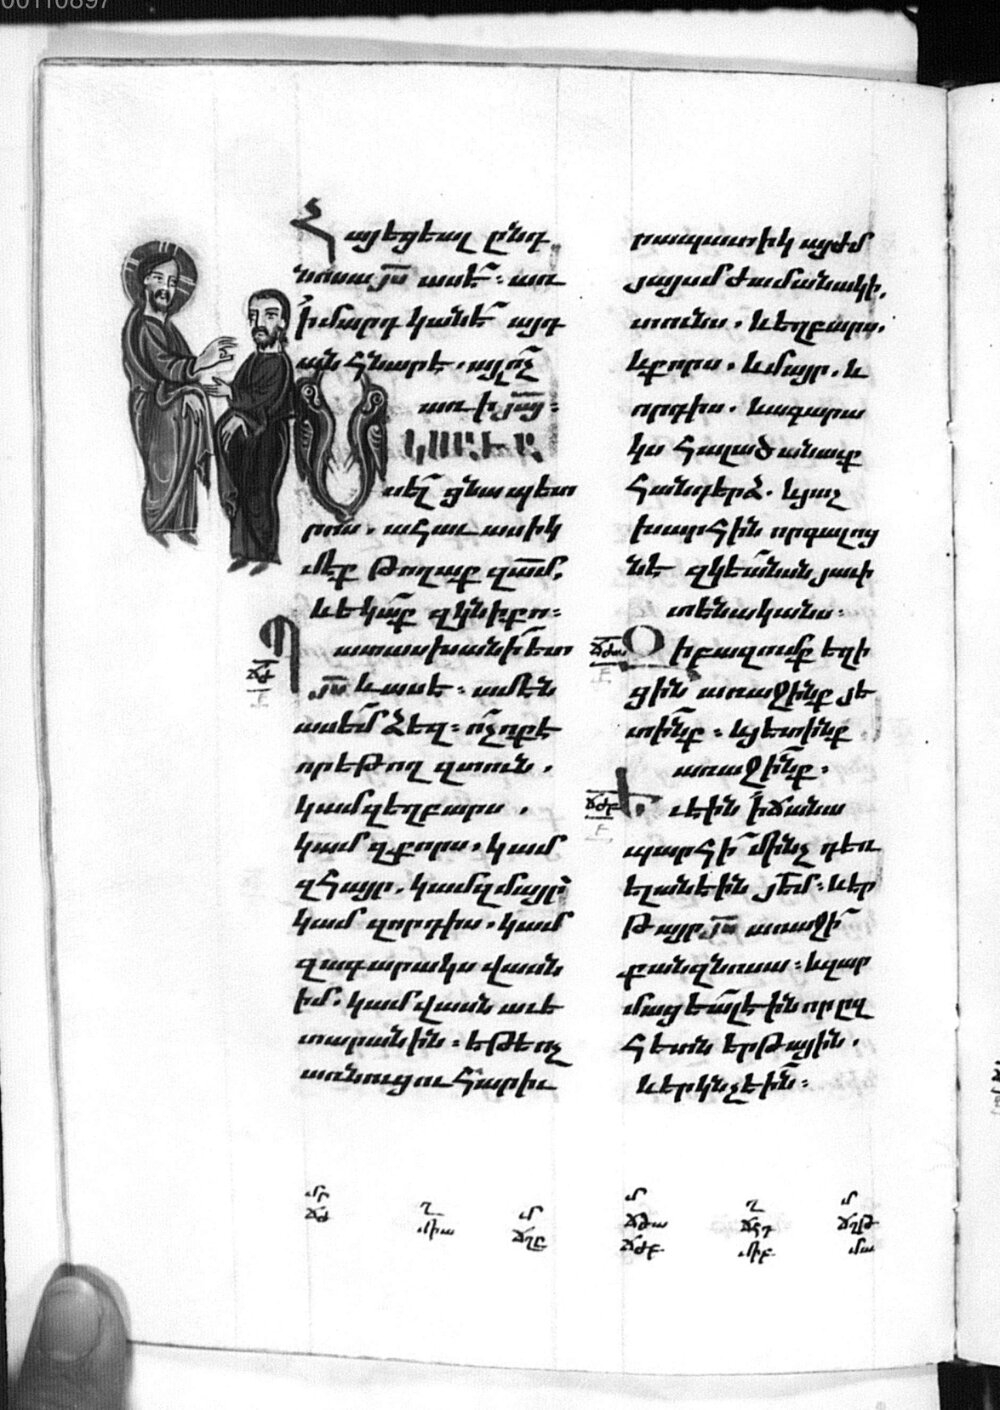 00110897
Հայեցեալ ընդ
նոսա յս ասէ՛. առ
ի մարդկանէ՛ այդ
անհնարէ. այլ ո՛չ
առ ի յայ:
ՍԿՍԱՒ Ա
սել ցնա պետ
րոս. ահաւասիկ
մեք թողաք զամ.
և եկաք զկնի քո:
Պատասխանի ետ
ճժ
յս և ասե. ամէն
ասեմ ձեզ. ո՛չ ոք է
որ եթող զտուն.
կամ զեղբարս.
կամ զքորս. կամ
զհայր. կամ զմայր
կամ զորդիս. կամ
զագարակս վասն
իմ. կամ վասն աւե
տարանին. եթե ոչ
առնուցու հարիւ
րապատիկ այժմ
յայսմ ժամանակի.
տունս. և եղբարս.
և քորս. և մայր. և
որդիս. և ագարա
կս հալածանաք
հանդերձ. և յաշ
խարհին որ գալոց
նէ զկեանսն յաւի
տենականս:
ճժա
Զի բազումք եղի
ցին առաջինք յե
տինք. և յետինք
առաջինք.
ճժբ
Եւ էին ի ճանա
պարհի մինչ դեռ
ելանէին յեմ: և եր
թայր յս առաջի
քան զնոսա: և զար
մացեալ էին որ ըզ
հետն երթային.
և երկնչեին:
մր
ճժ
ղ
միա
մ
ճղբ
մ
ճժա
ճժբ
ղ
միբ
մ
ճղթ
մա